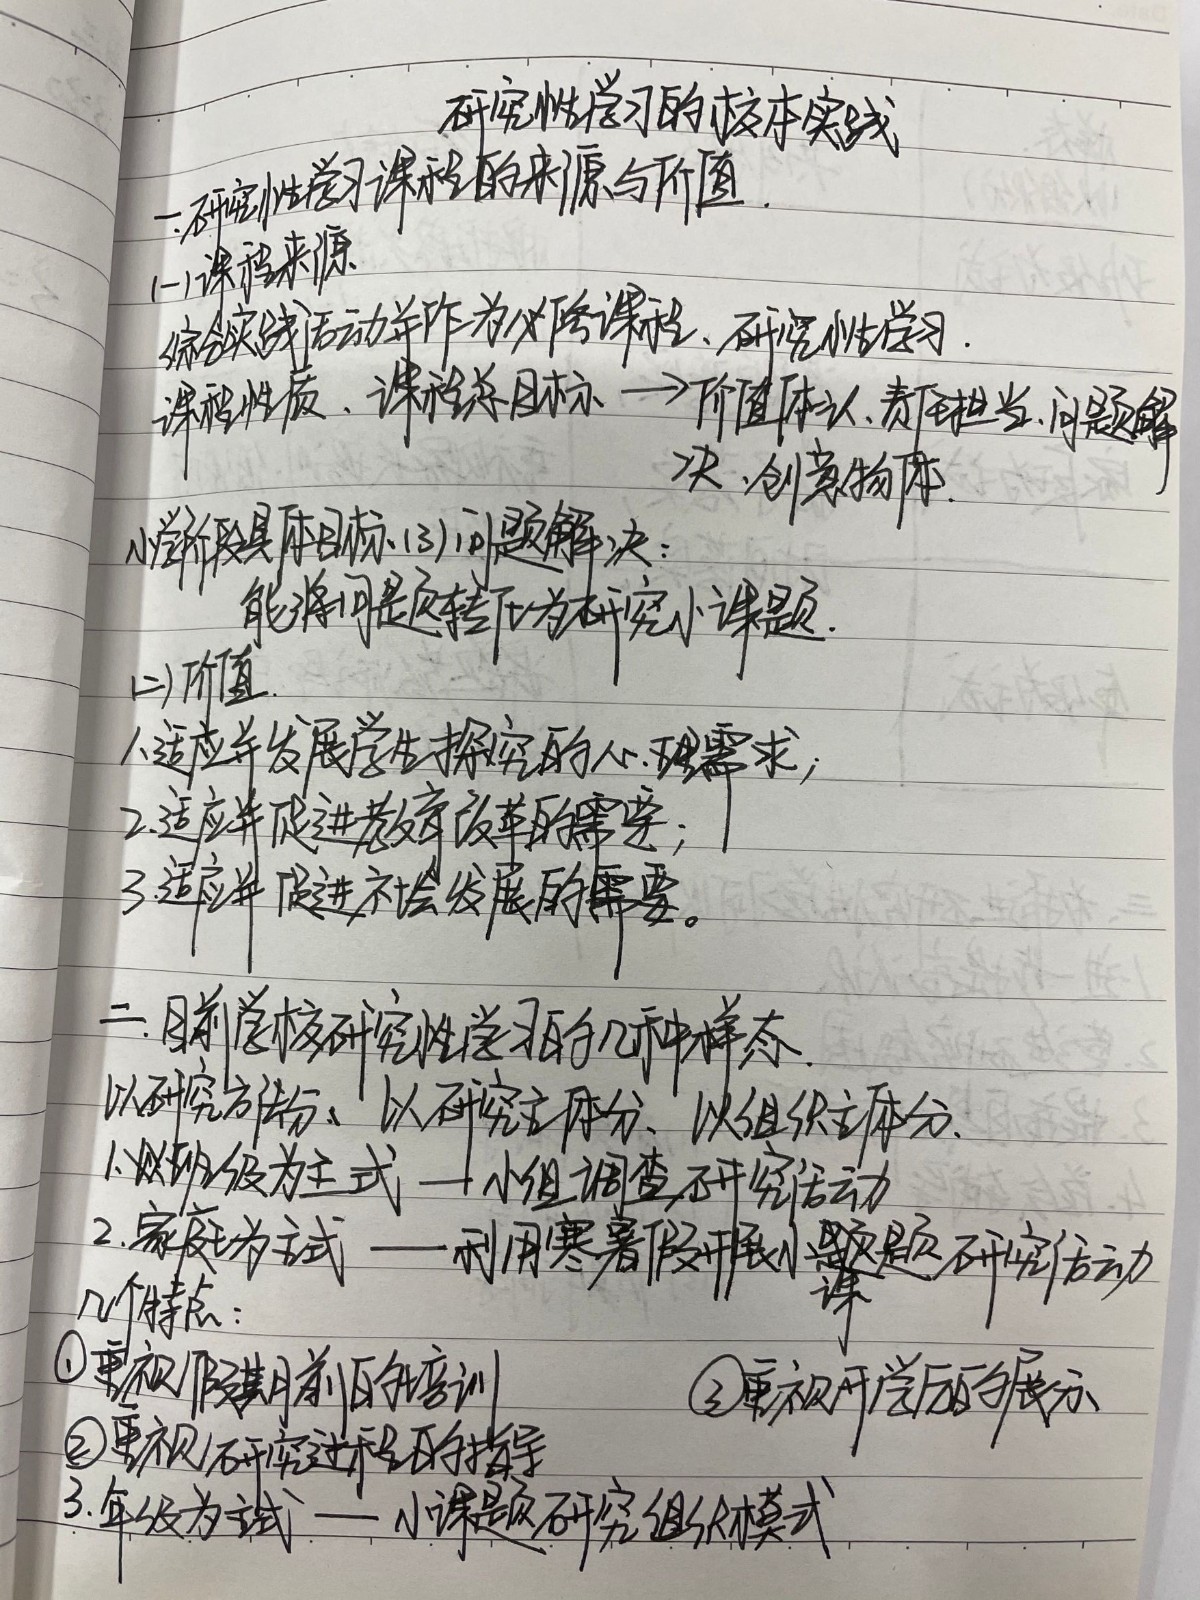 研究性学习的校本实践
一.研究性学习课程的来源与价值.
(一)课程来源
综合实践活动并作为必修课程、研究性学习.
课程性质、课程总目标 → 价值体认、责任担当、问题解
决、创意物体.
小学阶段具体目标、(3)问题解决:
能将问题转化为研究小课题.
(二)价值.
1.适应并发展学生探究的心理需求;
2.适应并促进教育改革的需要;
3.适应并促进社会发展的需要。
二.目前学校研究性学习的几种样态.
以研究方法分、以研究主体分、以组织主体分、
1.以班级为主式 — 小组调查研究活动
2.家庭为主式 —— 利用寒暑假开展小课题研究活动
几个特点:
①重视假期前的培训 ③重视开学后的展示
②重视研究过程的指导
3.年级为主式 —— 小课题研究组织模式